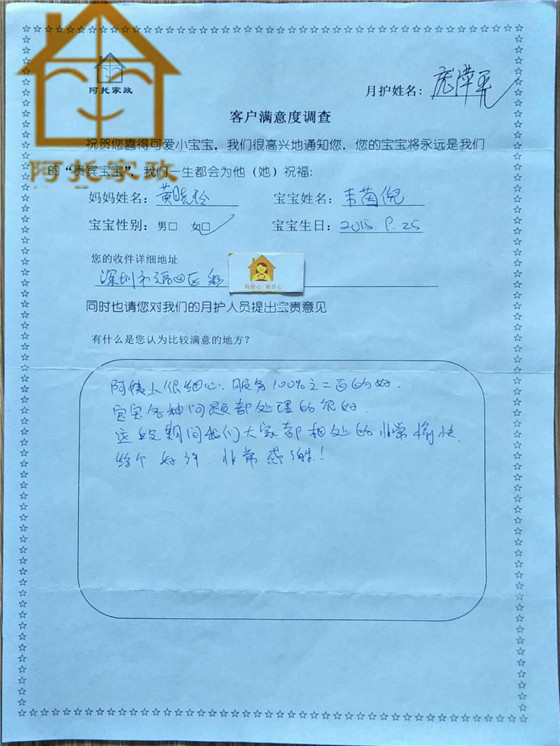 阿托家政
月护姓名：
客户满意度调查
祝贺您喜得可爱小宝宝，我们很高兴地通知您，您的宝宝将永远是我们
的“贵宾宝宝”，我们一生都会为他（她）祝福：
阿托家政
妈妈姓名：黄晓玲 宝宝姓名：
宝宝性别：男□ 女☑ 宝宝生日：2015.9.25
您的收件详细地址
深圳市福田区
有爱心 更放心
同时也请您对我们的月护人员提出宝贵意见
有什么是您认为比较满意的地方？
阿姨人很细心，服务100%之二百的好.
宝宝各种问题都处理的很好.
这段期间我们大家都相处的非常愉快.
给个好评，非常感谢！